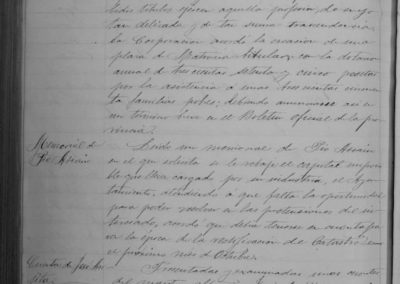 titulos ofrece aquella profesora, de su
tan delicado y de tan suma trascendencia,
la Corporacion acordó la creacion de una
plaza de Matrona titular, con la dotacion
anual de trescientas setenta y cinco pesetas
por la asistencia a unas trescientas
familias pobres; debiendo anunciarse asi
un termino en el Boletin oficial de la pro-
vincia.
Memorial de
Pio
Leido un memorial de Pio
en el que solicita se le rebaje el capital impo-
nible que lleva cargado por su industria, el Ayun-
tamiento, atendiendo á que falta la oportunidad
para poder resolver en las pretensiones del in-
teresado, acordó que debia tenerse en cuenta pa-
ra la época de la rectificacion de Catastro
el proximo mes de Octubre.
Cuentas de José
Presentadas y examinadas unas cuentas
del